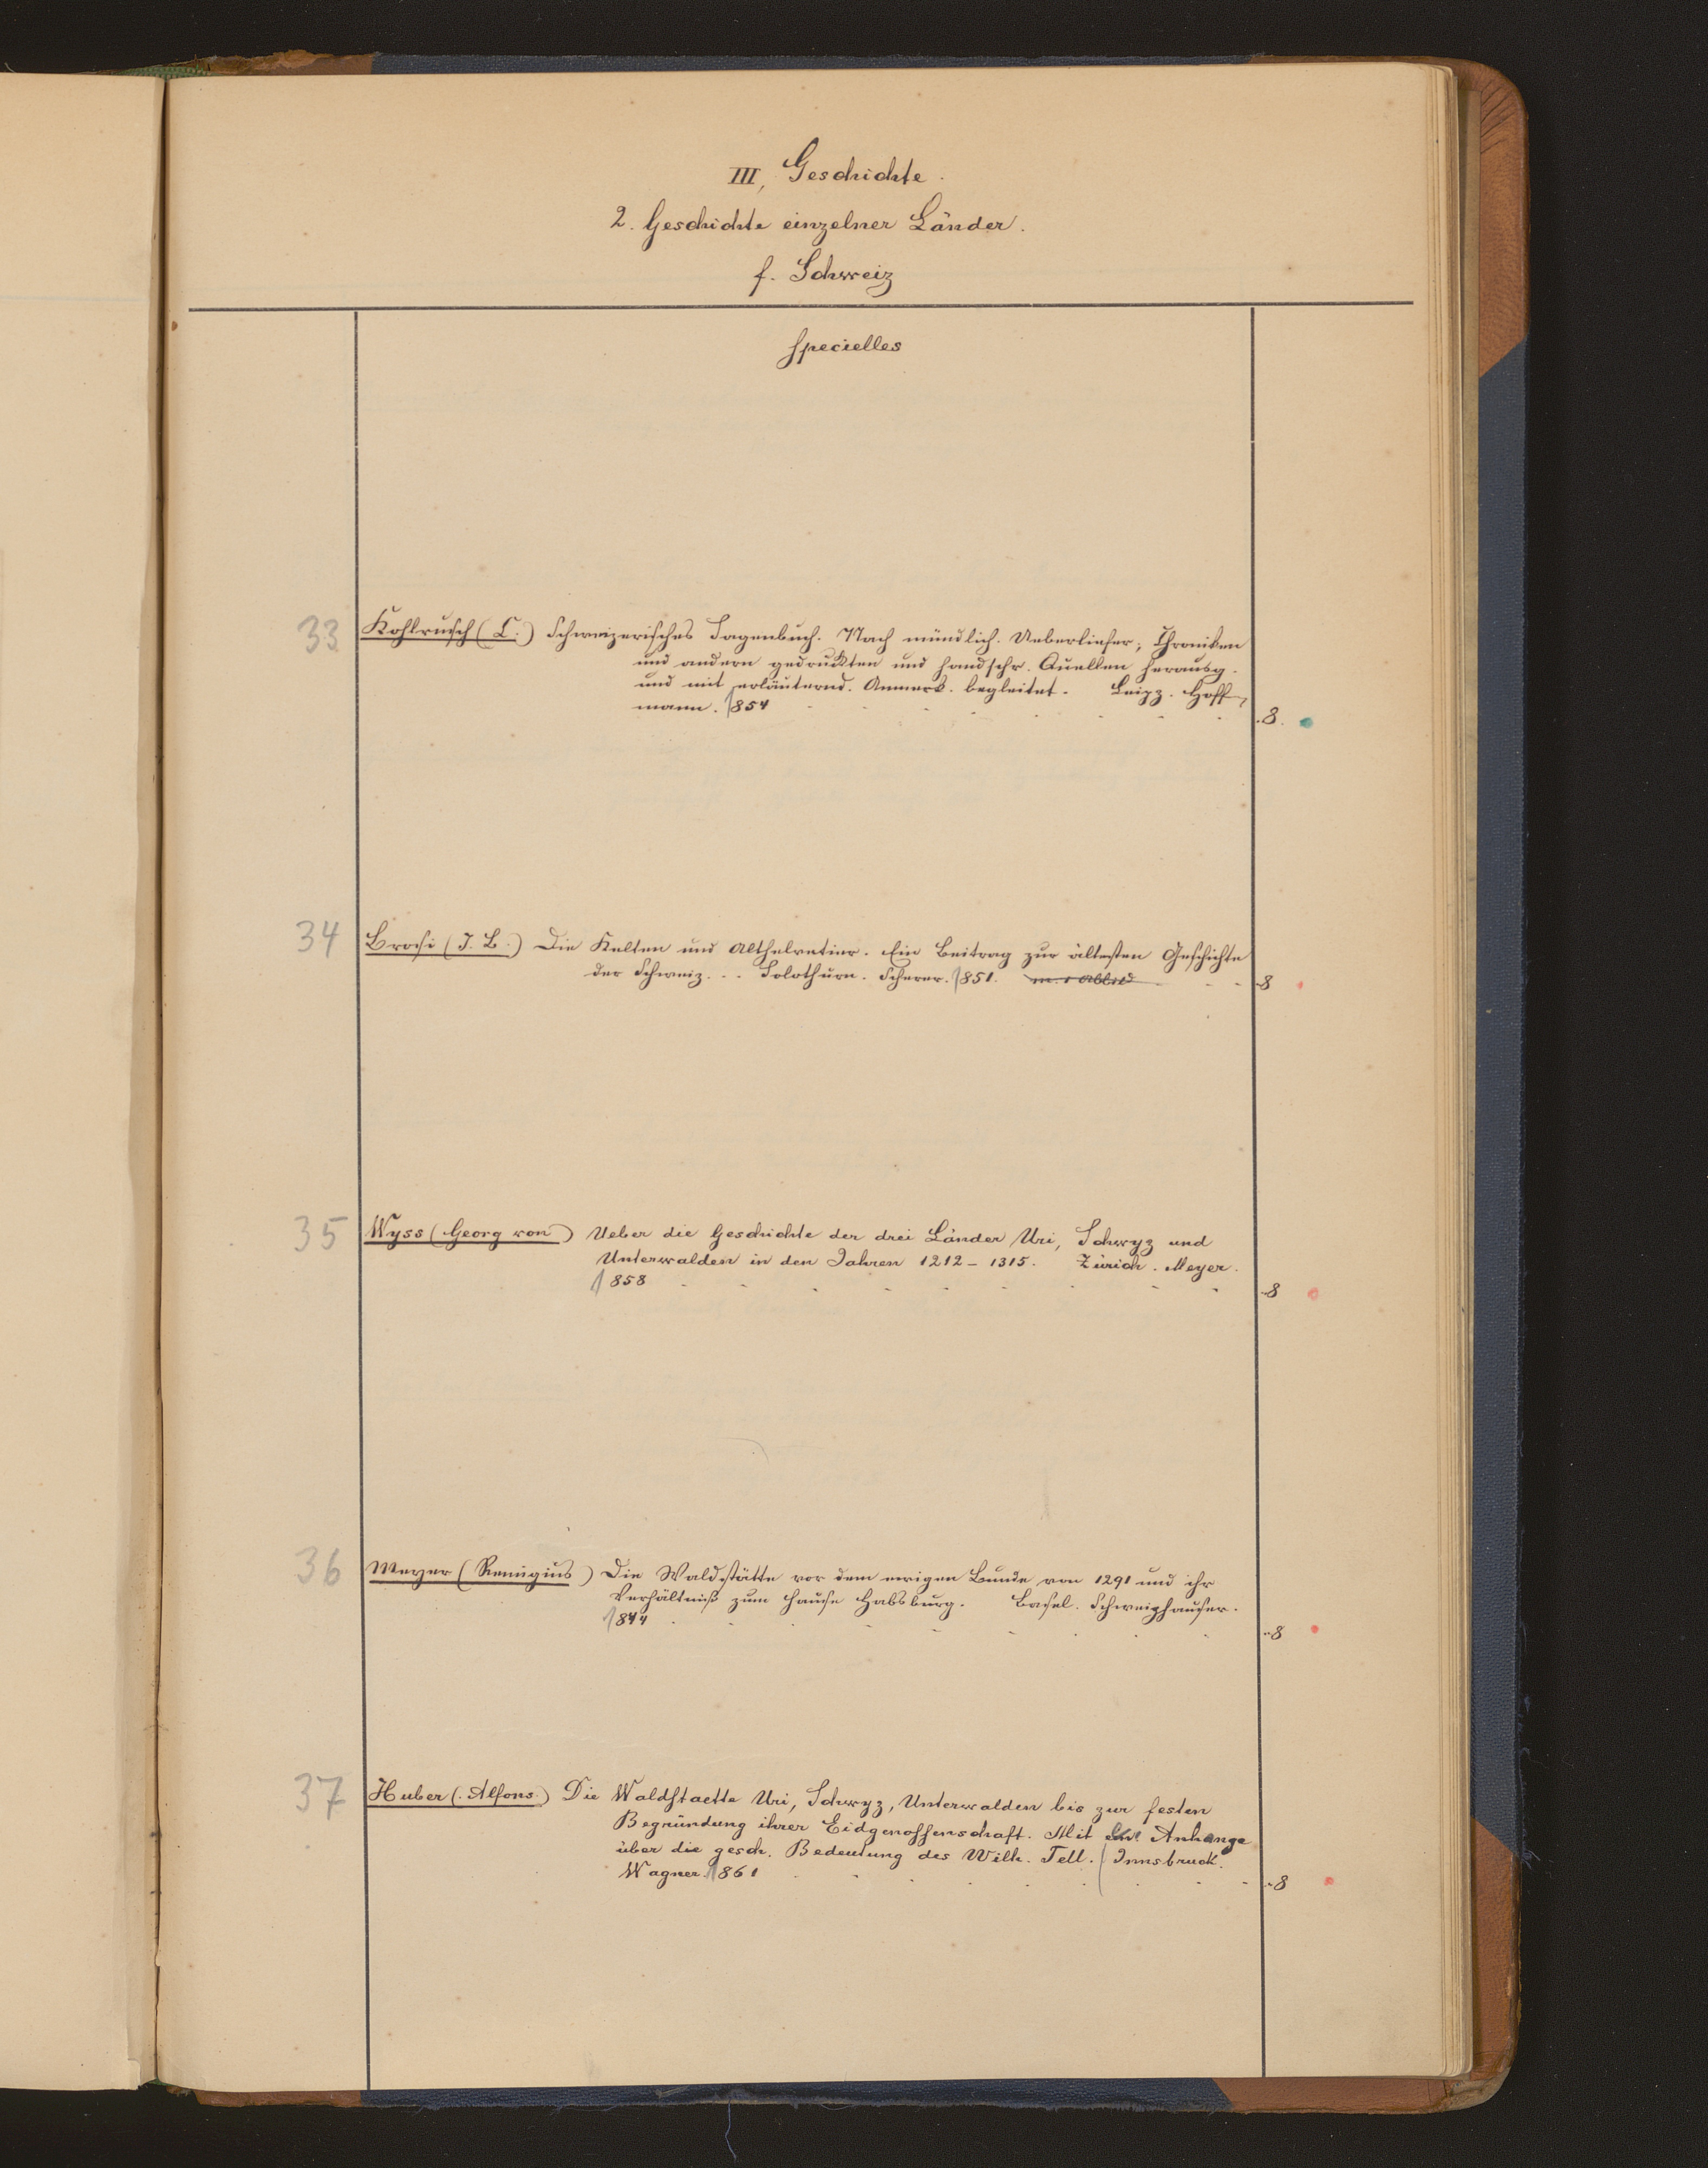 III, Geschichte.
2. Geschichte einzelner Länder.
f. Schweiz
Specielles
33 Kohlrusch (C.) Schweizerisches Sagenbuch. Nach mündlich. Ueberliefer, Chroniken
und andern gedruckten und handschr. Quellen herausg.
und mit erläuternd. Anmerk. begleitet. Leipz. Hoff-
mann. 1854 8.
34 Brosi (J. B.) Die Kelten und Althelvetier. Ein Beitrag zur ältesten Geschichte
der Schweiz. . . Solothurn. Scherer. 1851. 8
35 Wyss (Georg von) Ueber die Geschichte der drei Länder Uri, Schwyz und
Unterwalden in den Jahren 1212 - 1315. Zürich. Meyer.
1858 8
36 Meyer (Remigius) Die Waldstätte vor dem ewigen Bunde von 1291 und ihr
Verhältniß zum Hause Habsburg. Basel. Schweighauser.
1844 8
37 Huber (Alfons) Die Waldstaette Uri, Schwyz, Unterwalden bis zur festen
Begründung ihrer Eidgenossenschaft. Mit Anhange
über die gesch. Bedeutung des Wilh. Tell. Innsbruck.
Wagner. 1861 8